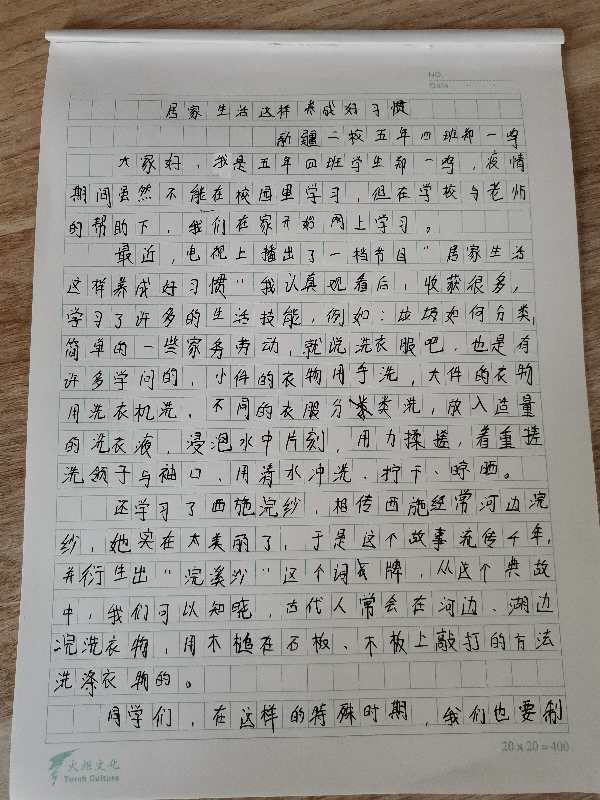 NO.
Date
居家生活这样养成好习惯
新疆二校五年四班郝一鸣
大家好，我是五年四班学生郝一鸣，疫情
期间虽然不能在校园里学习，但在学校与老师
的帮助下，我们在家开始网上学习。
最近，电视上播出了一档节目"居家生活
这样养成好习惯"我认真观看后，收获很多，
学习了许多的生活技能，例如：垃圾如何分类，
简单的一些家务劳动，就说洗衣服吧，也是有
许多学问的，小件的衣物用手洗，大件的衣物
用洗衣机洗，不同的衣服分类洗，放入适量
的洗衣液，浸泡水中片刻，用力揉搓，着重搓
洗领子与袖口，用清水冲洗、拧干、晾晒。
还学习了西施浣纱，相传西施经常河边浣
纱，她实在太美丽了，于是这个故事流传千年，
并衍生出"浣溪沙"这个词牌，从这个典故
中，我们可以知晓，古代人常会在河边、湖边
浣洗衣物，用木槌在石板、木板上敲打的方法
洗涤衣物的。
同学们，在这样的特殊时期，我们也要利
火炬文化
Torch Culture
20×20=400